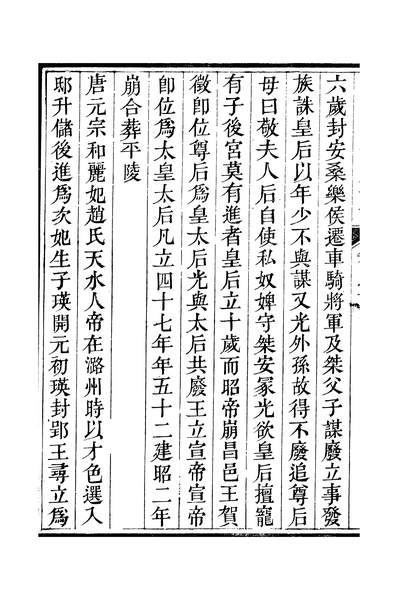 六歲封安桑樂侯遷車騎將軍及桀父子謀廢立事發
族誅皇后以年少不與謀又光外孫故得不廢追尊后
母曰敬夫人后自使私奴婢守桀安冢光欲皇后擅寵
有子後宮莫有進者皇后立十歲而昭帝崩昌邑王賀
徵卽位尊后爲皇太后光與太后共廢王立宣帝宣帝
卽位爲太皇太后凡立四十七年年五十二建昭二年
崩合葬平陵
唐元宗和麗妃趙氏天水人帝在潞州時以才色選入
邸升儲後進爲次妃生子瑛開元初瑛封郢王尋立爲